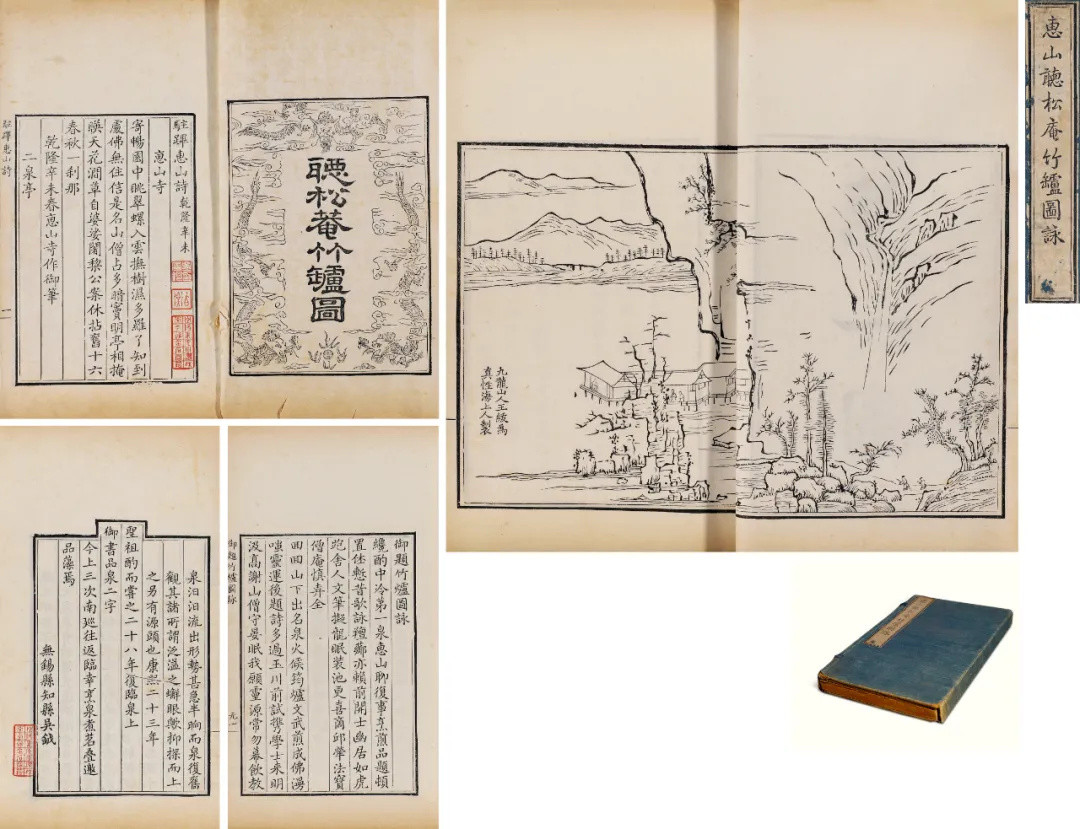 駐蹕惠山詩乾隆辛未
惠山寺
寄暢園中眺翠螺入雲撫樹濕多羅了知到
處佛無住信是名山僧占多暗竇明亭相掩
暎天花澗草自婆娑闍黎公案休拈舊十六
春秋一刹那
乾隆辛未春惠山寺作御筆
二泉亭
駐蹕惠山詩
聽松菴竹罏圖
九龍山人王紱為
真性海上人製
惠山聽松庵竹罏圖詠
泉汩汩流出形勢甚急半晌而泉復舊
觀其諸所謂泛溢之蠏眼歟抑探而上
之另有源頭也康熙二十三年
聖祖酌而嘗之二十八年復臨泉上
御書品泉二字
今上三次南廵往返臨幸烹泉煮茗疊邀
品藻焉
無錫縣知縣吳鉞
御題竹罏圖詠
纔酌中泠第一泉惠山聊復事烹煎品題頓
置休慙昔歌詠膻薌亦賴前開士幽居如虎
跑舍人文筆擬龍眠裝池更喜商邱犖法寶
僧庵慎弆全
曲曲山下出名泉火候筠罏文武煎成佛漫
嗤靈運後題詩多過玉川前試携學士來明
汲高謝山僧守晏眠我願重源常勿幕飲教
御題竹罏圖詠